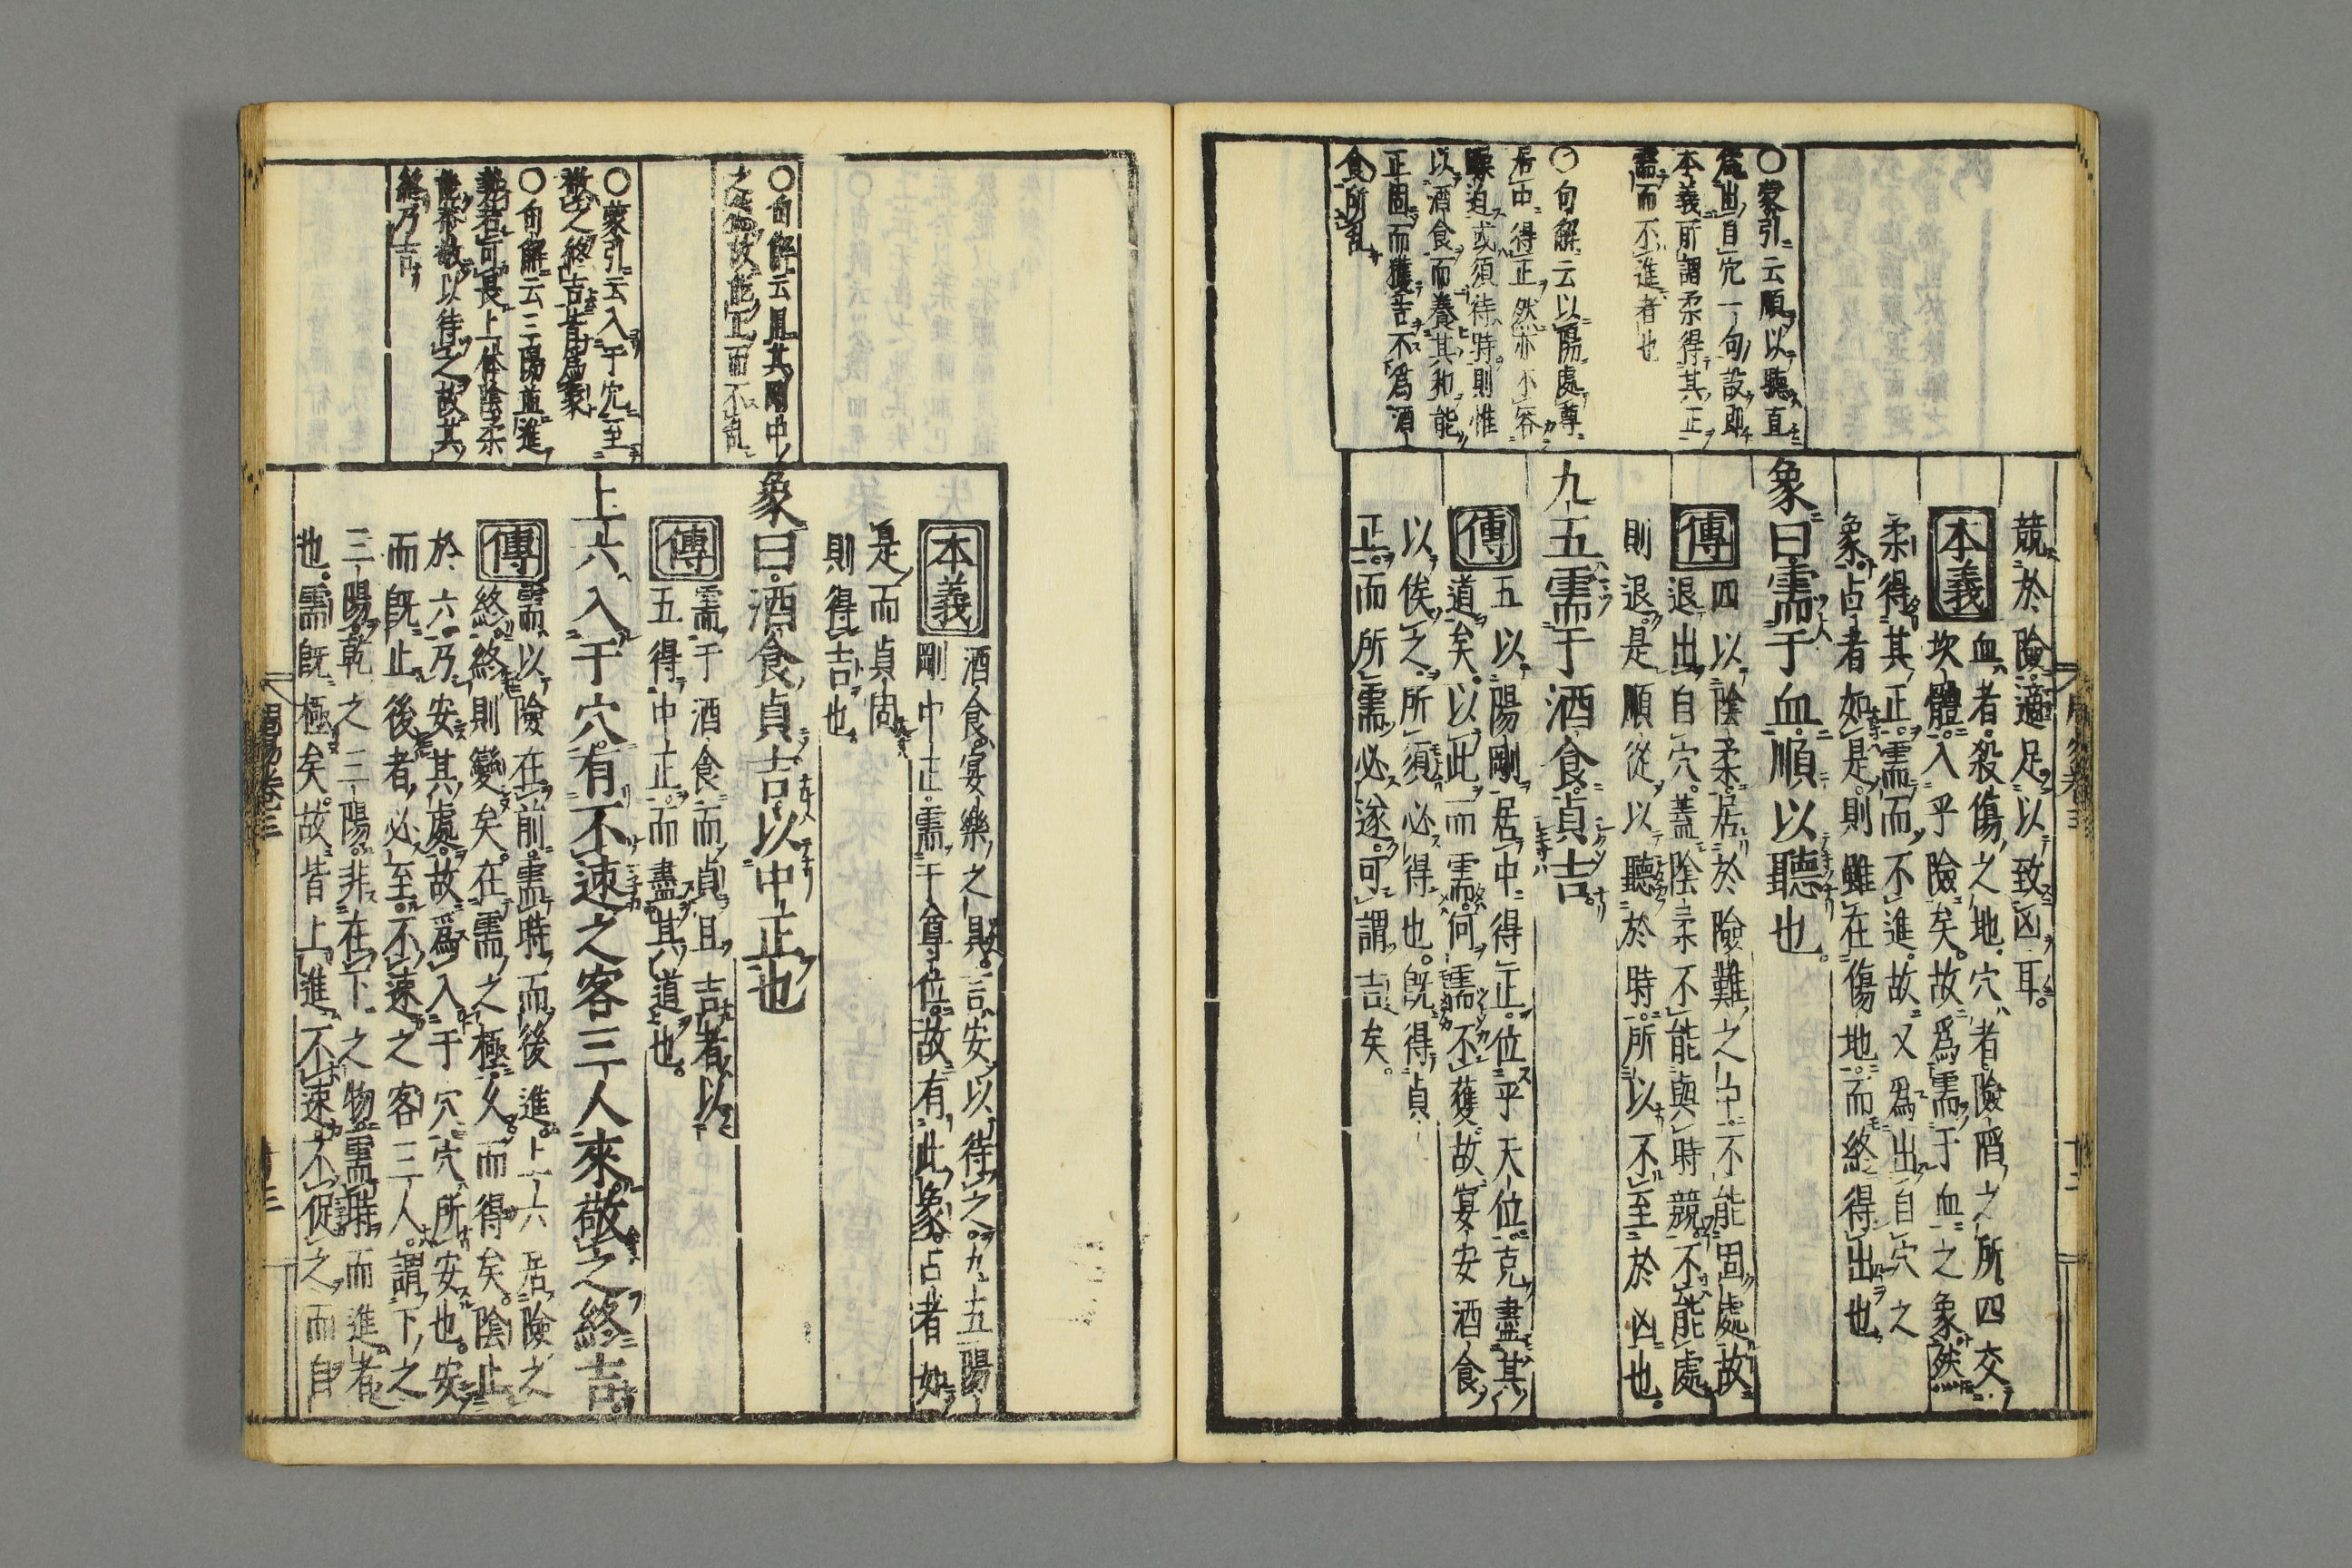 〇蒙引云順以聽直
爲出自穴一句設即
本義所謂柔得其正
需而不進者也
〇句解云以陽處尊
居中得正然亦不容
驟迫或須待時則惟
以酒食而養其和能
正固而獲吉不爲酒
食所乱
競於險。適足以致凶耳。
本義 血者。殺傷之地。穴者。險陷之所。四交
坎體。入乎險矣。故爲需于血之象。然
柔得其正。需而不進。故又爲出自穴之
象。占者如是。則雖在傷地。而終得出也
象曰。需于血。順以聽也。
傳 四以陰柔。居於險難之中。不能固處。故
退出自穴。蓋陰柔不能與時競。不能處
則退。是順從以聽於時。所以不至於凶也。
九五。需于酒食。貞吉。
傳 五以陽剛居中得正。位乎天位。克盡其
道矣。以此而需。何需不獲。故宴安酒食
以俟之。所須必得也。既得貞
正。而所需必遂。可謂吉矣。
〇句解云且其剛中
之德故能正而不乱
〇蒙引云入于穴至
敬之終吉皆爲象
〇句解云三陽並進
勢若可畏上体陰柔
能恭敬以待之故其
終乃吉
本義 酒食。宴樂之具。言安以待之。九五陽
剛中正。需于尊位。故有此象。占者如
是而貞固。
則得吉也。
象曰。酒食貞吉。以中正也
傳 需于酒食。而貞且吉者。以
五得中正。而盡其道也。
上六。入于穴。有不速之客三人來。敬之終吉。
傳 需以險在前。需時而後進。上六居險之
終。終則變矣。在需之極。久而得矣。陰止
於六。乃安其處。故爲入于穴。穴。所安也。安
而既止。後者必至。不速之客三人。謂下之
三陽。乾之三陽。非在下之物。需時而進者
也。需既極矣。故皆上進。不速。不促之而自
周易卷三
十三